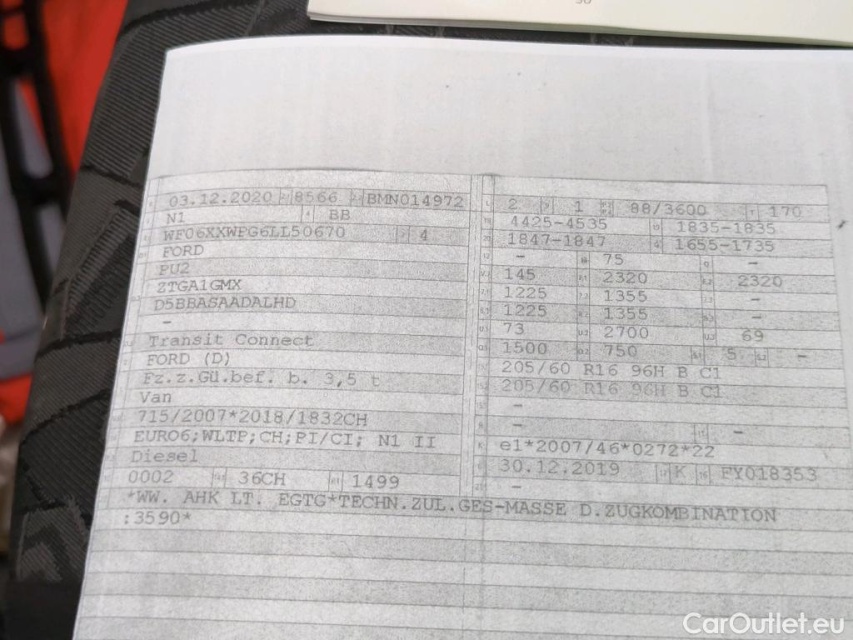 03.12.2020 8566 BMN014972
N1 BB
WF06XXWPG6LL50670 4
FORD
PU2
ZTGA1GMX
D5BBASAADALHD
-
Transit Connect
FORD (D)
Fz.z.Gü.bef. b. 3,5 t
Van
715/2007*2018/1832CH
EURO6;WLTP;CH;PI/CI; N1 II
Diesel
0002 36CH 1499
*WW. AHK LT. EGTG*TECHN.ZUL.GES-MASSE D.ZUGKOMBINATION
:3590*
2 1 88/3600 170
4425-4535 1835-1835
1847-1847 1655-1735
- 75 -
145 2320 2320
1225 1355 -
1225 1355 -
73 2700 69
1500 750 5 -
205/60 R16 96H B C1
205/60 R16 96H B C1
-
- -
e1*2007/46*0272*22
30.12.2019 K FY018353
-
CarOutlet.eu